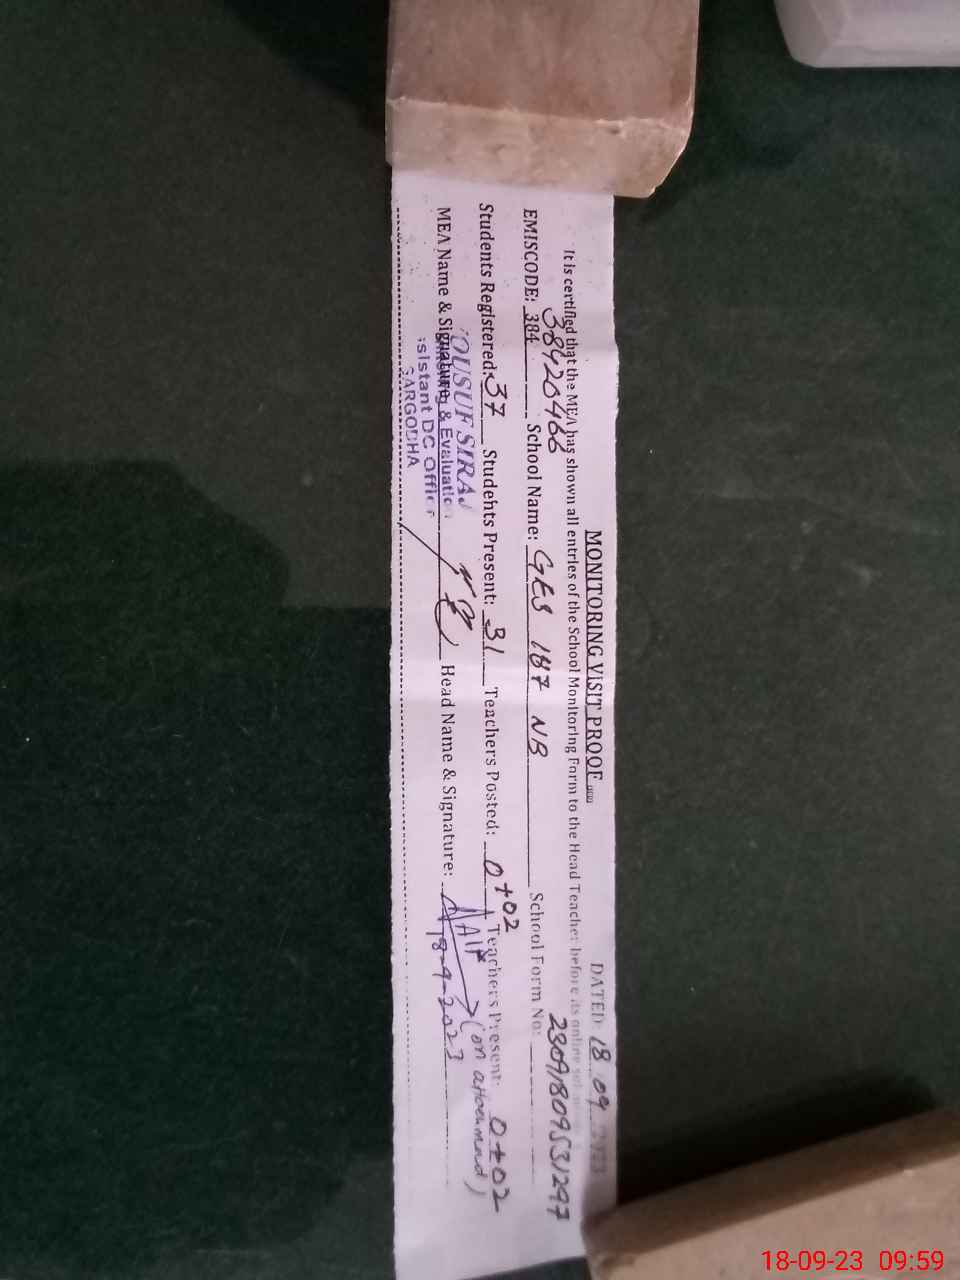 MONITORING VISIT PROOF
DATED: 18 09 2023
It is certified that the MEA has shown all entries of the School Monitoring Form to the Head Teacher before its online
38420466
23091809531297
EMISCODE: 384 School Name: GES 187 NB School Form No:
Students Registered: 37 Students Present: 31 Teachers Posted: 0+02 Teachers Present: 0+02
(on attachment)
MEA Name & Signature: Head Name & Signature:
18-9-2023
OUSUF SIRAJ
& Evaluation
sistant DC Office
SARGODHA
18-09-23 09:59